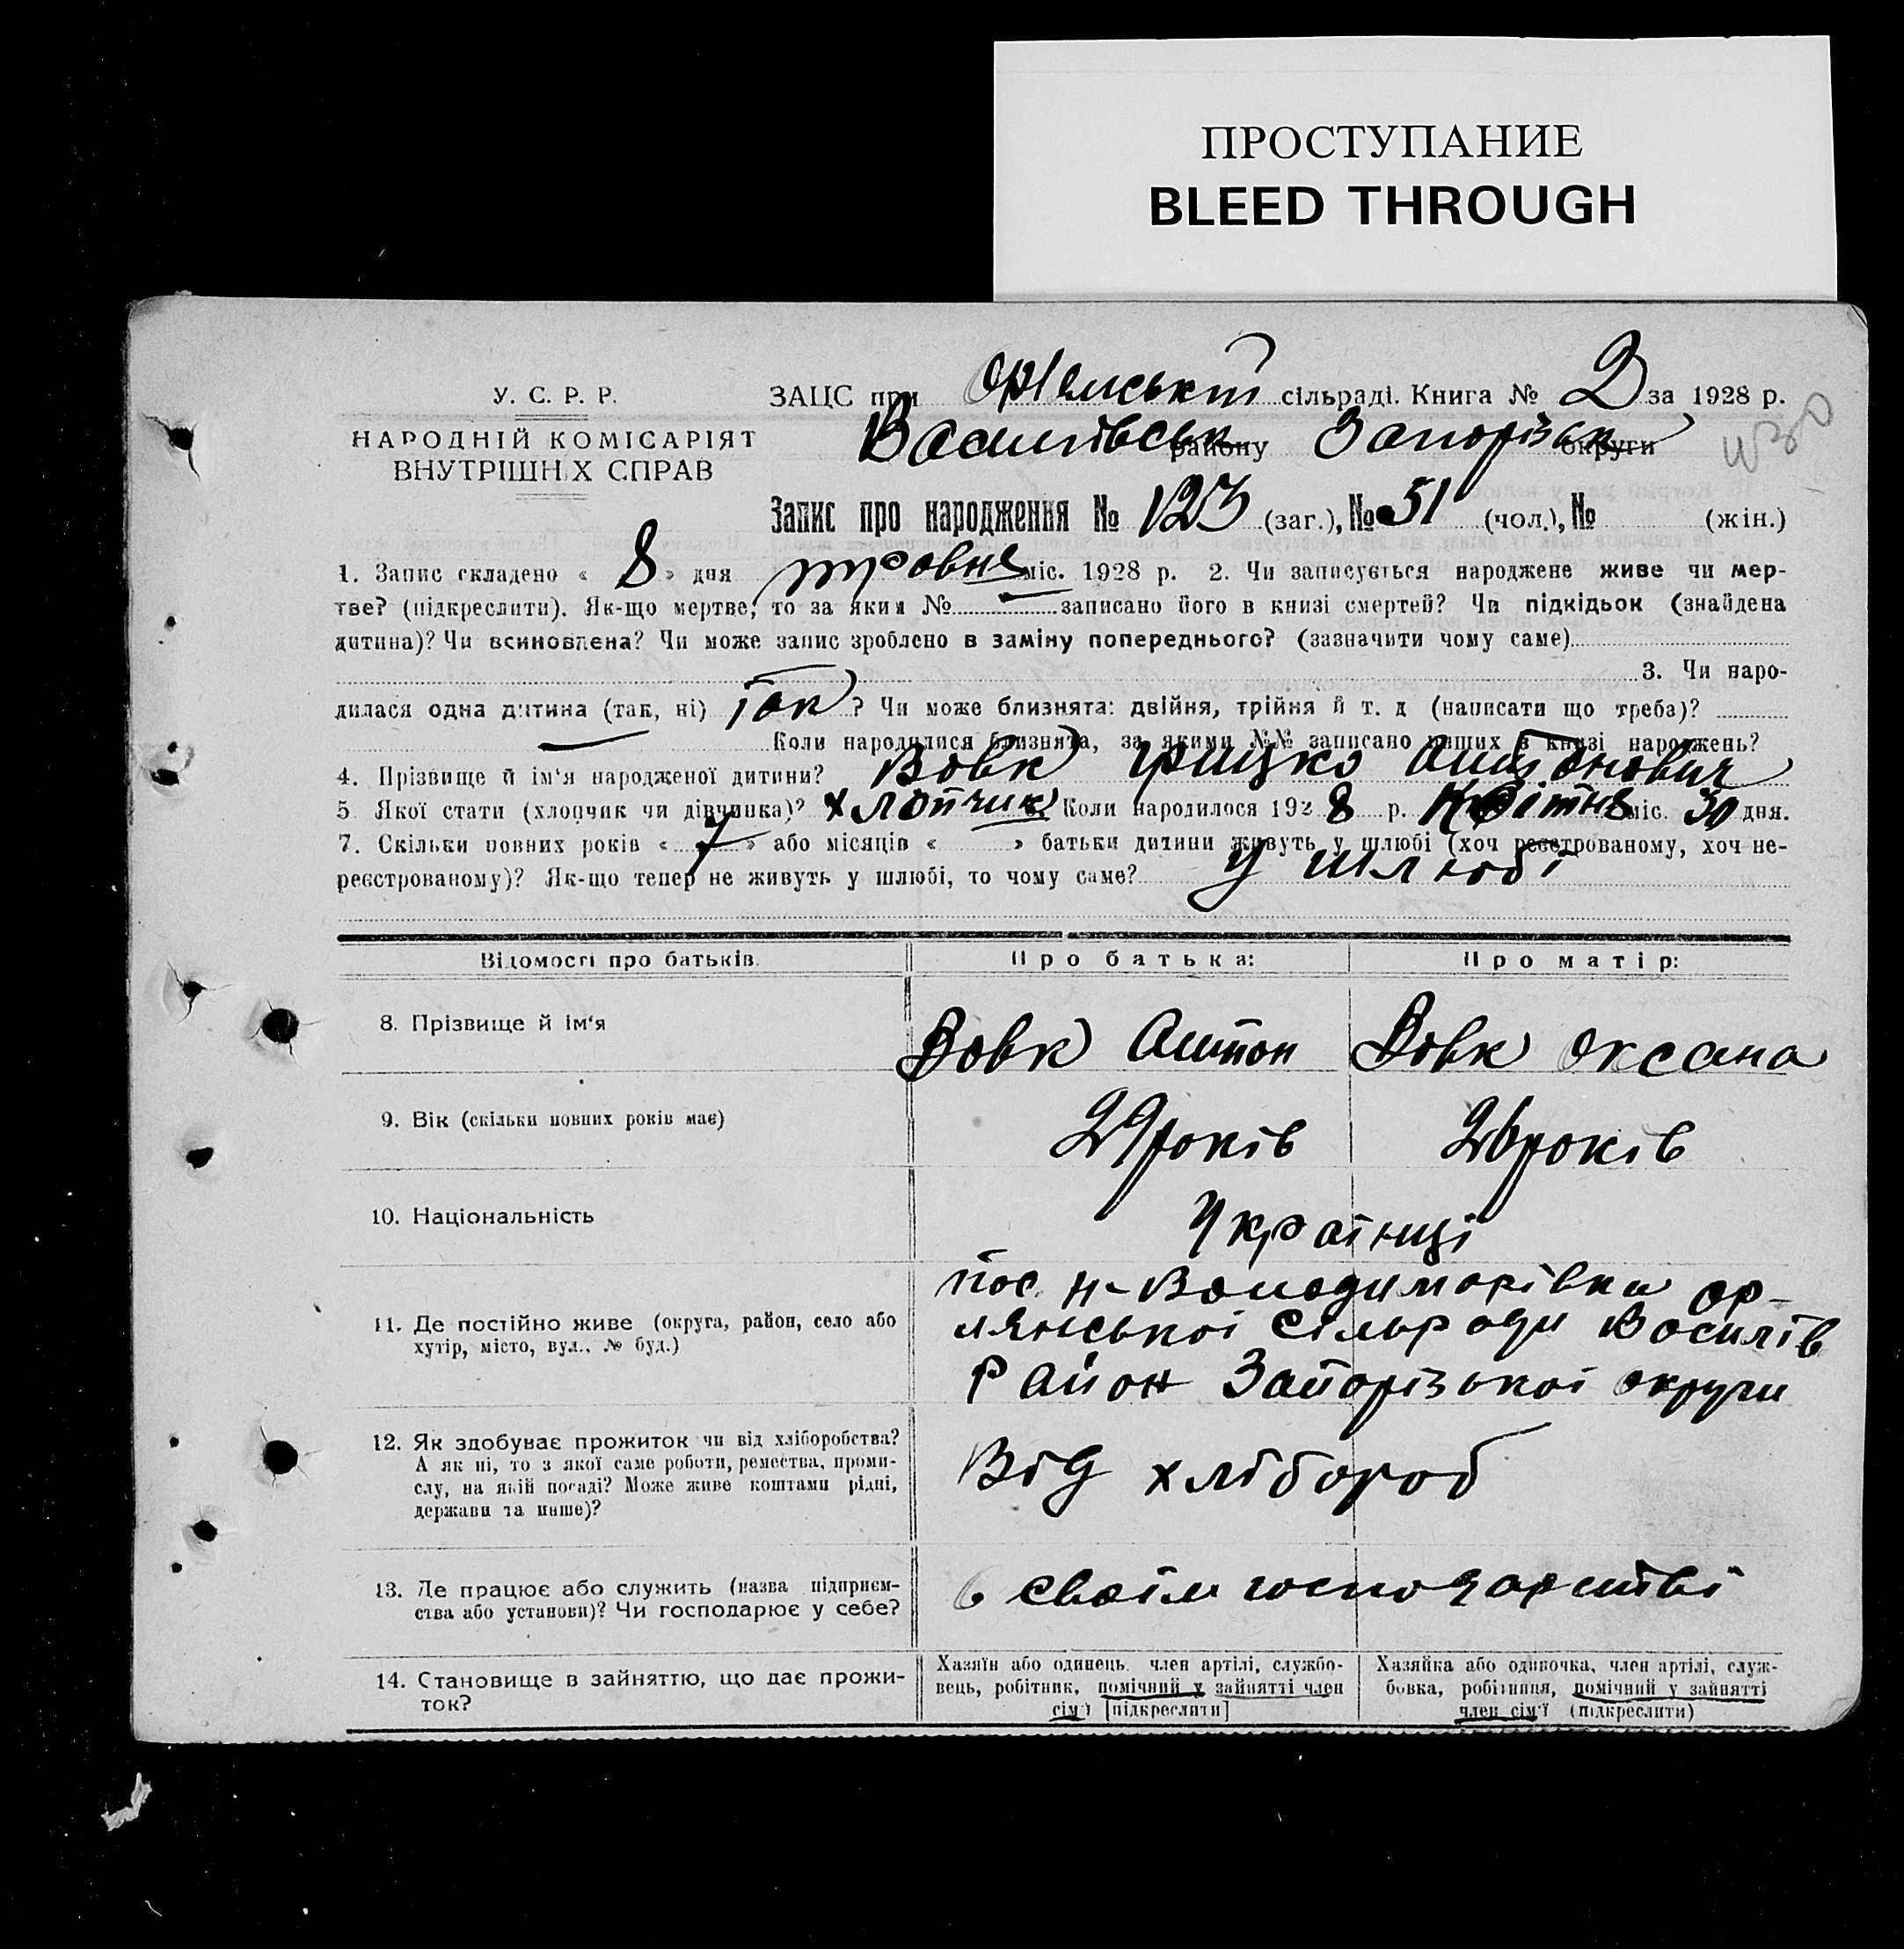 ПРОСТУПАНИЕ
BLEED THROUGH
У. С. Р. Р.
НАРОДНІЙ КОМІСАРІЯТ
ВНУТРІШНІХ СПРАВ
ЗАЦС при сільраді. Книга № 2 за 1928 р.
Василівськ району Запорізьк округи
Запис про народження № 123 (заг.), № 51 (чол.), № (жін.)
1. Запис складено « 8 » дня травня міс. 1928 р. 2. Чи записується народжене живе чи мер-
тве? (підкреслити). Як-що мертве, то за яким № записано його в книзі смертей? Чи підкідьок (знайдена
дитина)? Чи всиновлена? Чи може запис зроблено в заміну попереднього? (зазначити чому саме)
3. Чи наро-
дилася одна дитина (так, ні) так ? Чи може близнята: двійня, трійня й т. д (написати що треба)?
Коли народилися близнята, за якими №№ записано инших в книзі народжень?
4. Прізвище й ім'я народженої дитини? Вовк Грицко Антонович
5 Якої стати (хлопчик чи дівчинка)? хлопчик Коли народилося 192 8 р. Квітня міс. 30 дня.
7. Скільки повних років « 7 » або місяців « » батьки дитини живуть у шлюбі (хоч реєстрованому, хоч не-
реєстрованому)? Як-що тепер не живуть у шлюбі, то чому саме? У шлюбі
Відомості про батьків. Про батька: Про матір:
8. Прізвище й ім'я Вовк Антон Вовк Оксана
9. Вік (скільки повних років має) 29 років 26 років
10. Національність Українці
11. Де постійно живе (округа, район, село або
хутір, місто, вул., № буд.)
пос. Н-Володимирівка Ор-
лянської Сільради Василів
Район Запорізької округи
12. Як здобуває прожиток чи від хліборобства?
А як ні, то з якої саме роботи, ремества, проми-
слу, на якій посаді? Може живе коштами рідні,
держави та инше)?
Від хлібороб
13. Де працює або служить (назва підприєм-
ства або установи)? Чи господарює у себе?
в своїм господарстві
14. Становище в зайняттю, що дає прожи-
ток?
Хазяїн або одинець, член артілі, службо-
вець, робітник, помічний у зайнятті член
сім'ї [підкреслити]
Хазяйка або одиночка, член артілі, служ-
бовка, робітниця, помічний у зайнятті
член сім'ї (підкреслити)